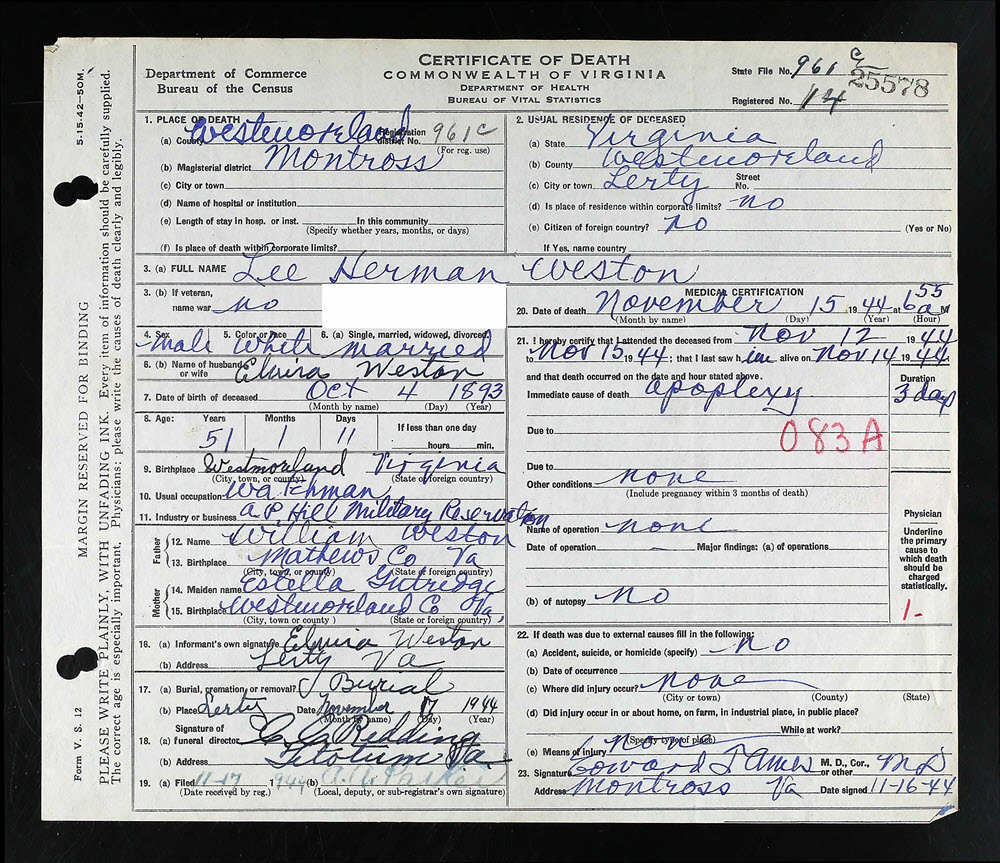 CERTIFICATE OF DEATH
COMMONWEALTH OF VIRGINIA
DEPARTMENT OF HEALTH
BUREAU OF VITAL STATISTICS
Department of Commerce
Bureau of the Census
State File No. 961 C
25578
Registered No. 14
5-15-42-50M.
MARGIN RESERVED FOR BINDING
PLEASE WRITE PLAINLY, WITH UNFADING INK. Every item of information should be carefully supplied.
The correct age is especially important. Physicians: please write the causes of death clearly and legibly.
Form V. S. 12
1. PLACE OF DEATH
(a) County Westmoreland Registration District No. 961C
(For reg. use)
(b) Magisterial district Montross
(c) City or town
(d) Name of hospital or institution
(e) Length of stay in hosp. or inst. In this community
(Specify whether years, months, or days)
(f) Is place of death within corporate limits?
2. USUAL RESIDENCE OF DECEASED
(a) State Virginia
(b) County Westmoreland
(c) City or town Lerty Street No.
(d) Is place of residence within corporate limits? no
(e) Citizen of foreign country? no (Yes or No)
If Yes, name country
3. (a) FULL NAME Lee Herman Weston
3. (b) If veteran, name war no
4. Sex 5. Color or race 6. (a) Single, married, widowed, divorced
male White married
6. (b) Name of husband or wife Elvira Weston
7. Date of birth of deceased Oct 4 1893
(Month by name) (Day) (Year)
8. Age: Years Months Days If less than one day
51 1 11 hours min.
9. Birthplace Westmoreland Virginia
(City, town, or county) (State or foreign country)
10. Usual occupation Watchman
11. Industry or business A.P. Hill Military Reservation
Father
12. Name William Weston
13. Birthplace Mathews Co Va
(City, town, or county) (State or foreign country)
Mother
14. Maiden name Estella Gutredge
15. Birthplace Westmoreland Co Va,
(City, town or county ) (State or foreign country)
16. (a) Informant's own signature Elvira Weston
(b) Address Lerty Va
17. (a) Burial, cremation or removal? Burial
(b) Place Lerty Date November 17 1944
(Month by name) (Day) (Year)
18. Signature of
(a) funeral director C. C. Redding
(b) Address Va
19. (a) Filed 11-17 1944 (b)
(Date received by reg.) (Local, deputy, or sub-registrar's own signature)
MEDICAL CERTIFICATION
20. Date of death November 15 1944 at 6 55 a M
(Month by name) (Day) (Year) (Hour)
21. I hereby certify that I attended the deceased from Nov 12 1944
to Nov 15 1944; that I last saw him alive on Nov 14 1944
and that death occurred on the date and hour stated above.
Duration
Immediate cause of death apoplexy 3 days
Due to
083A
Due to
Other conditions none
(Include pregnancy within 3 months of death)
Name of operation none
Date of operation Major findings: (a) of operations
(b) of autopsy no
Physician
Underline the primary cause to which death should be charged statistically.
1-
22. If death was due to external causes fill in the following:
(a) Accident, suicide, or homicide (specify) no
(b) Date of occurrence
(c) Where did injury occur? none
(City or town) (County) (State)
(d) Did injury occur in or about home, on farm, in industrial place, in public place?
While at work?
(Specify type of place)
(e) Means of injury
23. Signature M. D., Cor., or other MD
Address Montross Va Date signed 11-16-44